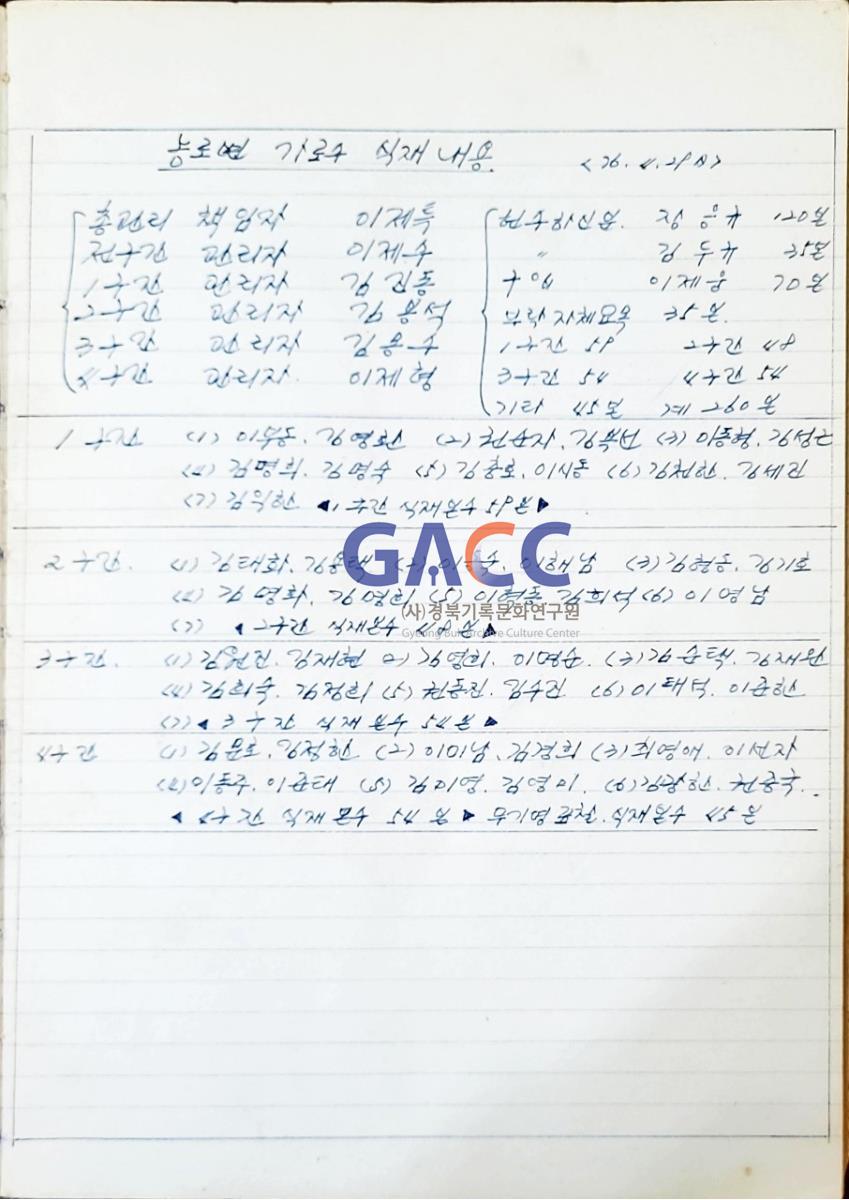 농로변 가로수 식재 내용 <76. 4. 29日>
총관리 책임자 이제특
전구간 관리자 이제수
1구간 관리자 김진동
2구간 관리자 김용석
3구간 관리자 김용수
4구간 관리자 이제형
헌수하신분. 장응규 120본
〃 김두규 35본
구입 이제웅 70본
부락자체묘목 35본.
1구간 59 2구간 48
3구간 54 4구간 54
기타 45본 계 260본
1구간 (1) 김영환 (2) 천순자. 김복선 (3) 이동형. 김성근
(4) 김명희. 김명숙 (5) 김충호. 이시동 (6) 김천한. 김세진
(7) 김익한 ◀1구간 식재본수 59본▶
2구간. (1) 김태화. 이해남 (3) 김형동. 김기호
(4) 김명화. 김명희. (5) 이형동 김희석 (6) 이영남
(7) ◀2구간 식재본수 48본▶
GACC
(사)경북기록문화연구원
Gyeong Buk Archive Culture Center
3구간. (1) 김원진. 김재현 (2) 김영희. 이명순. (3) 김순택. 김재완
(4) 김희숙. 김정희 (5) 권동진. 김수진 (6) 이태석. 이준한
(7) ◀3구간 식재본수 54본▶
4구간 (1) 김문호. 김정한 (2) 이미남. 김경희 (3) 최영애. 이선자
(4) 이동주. 이준태 (5) 김미영. 김영미. (6) 김광한. 권종국.
◀4구간 식재본수 54본▶ 무기명표찰. 식재본수 45본